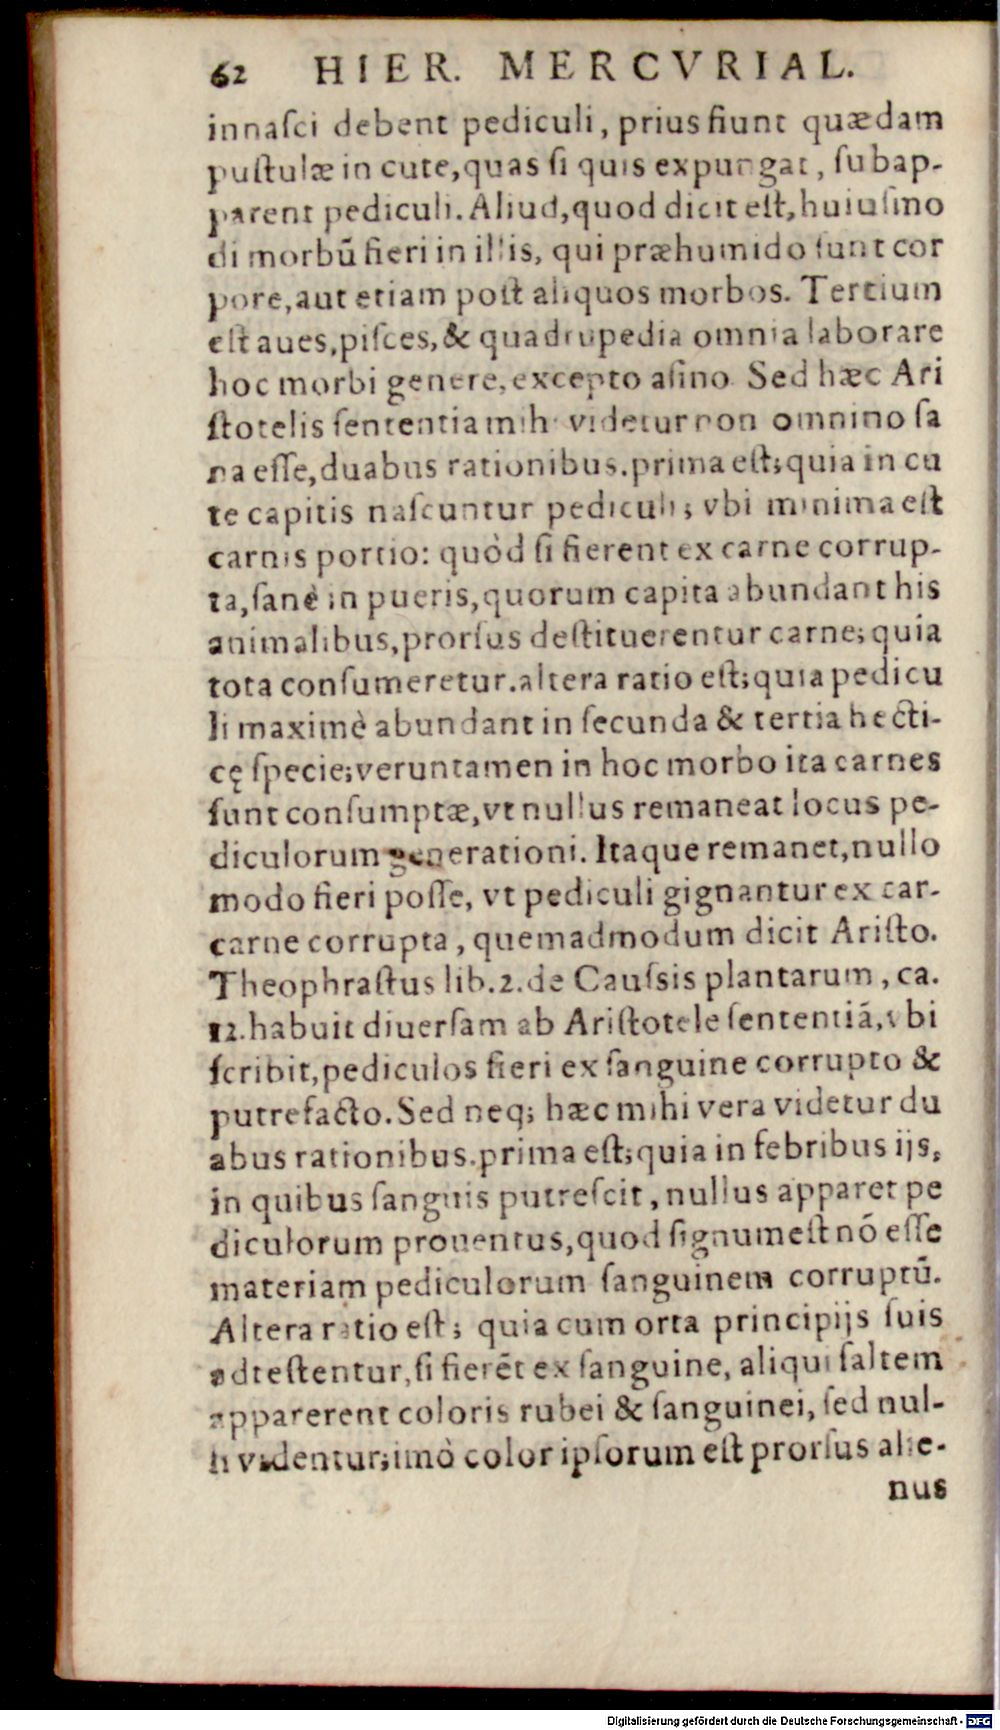 62 HIER. MERCVRIAL.
innaſci debent pediculi, prius fiunt quædam
puſtulæ in cute, quas ſi quis expungat, ſubap-
parent pediculi. Aliud, quod dicit eſt, huiuſmo
di morbũ fieri in illis, qui præhumido ſunt cor
pore, aut etiam poſt aliquos morbos. Tertium
eſt aues, piſces, & quadrupedia omnia laborare
hoc morbi genere, excepto aſino. Sed hæc Ari
ſtotelis ſententia mihi videtur non omnino ſa
na eſſe, duabus rationibus. prima eſt; quia in cu
te capitis naſcuntur pediculi; vbi minima eſt
carnis portio: quòd ſi fierent ex carne corrup-
ta, ſanè in pueris, quorum capita abundant his
animalibus, prorſus deſtituerentur carne; quia
tota conſumeretur. altera ratio eſt; quia pedicu
li maximè abundant in ſecunda & tertia hecti-
cę ſpecie; veruntamen in hoc morbo ita carnes
ſunt conſumptæ, vt nullus remaneat locus pe-
diculorum generationi. Itaque remanet, nullo
modo fieri poſſe, vt pediculi gignantur ex car-
carne corrupta, quemadmodum dicit Ariſto.
Theophraſtus lib. 2. de Cauſsis plantarum, ca.
12. habuit diuerſam ab Ariſtotele ſententiã, vbi
ſcribit, pediculos fieri ex ſanguine corrupto &
putrefacto. Sed neq; hæc mihi vera videtur du
abus rationibus. prima eſt; quia in febribus ijs,
in quibus ſanguis putreſcit, nullus apparet pe
diculorum prouentus, quod ſignum eſt nõ eſſe
materiam pediculorum ſanguinem corruptũ.
Altera ratio eſt; quia cum orta principijs ſuis
adteſtentur, ſi fierẽt ex ſanguine, aliqui ſaltem
apparerent coloris rubei & ſanguinei, ſed nul-
li videntur; imò color ipſorum eſt prorſus alie-
nus
Digitalisierung gefördert durch die Deutsche Forschungsgemeinschaft - DFG